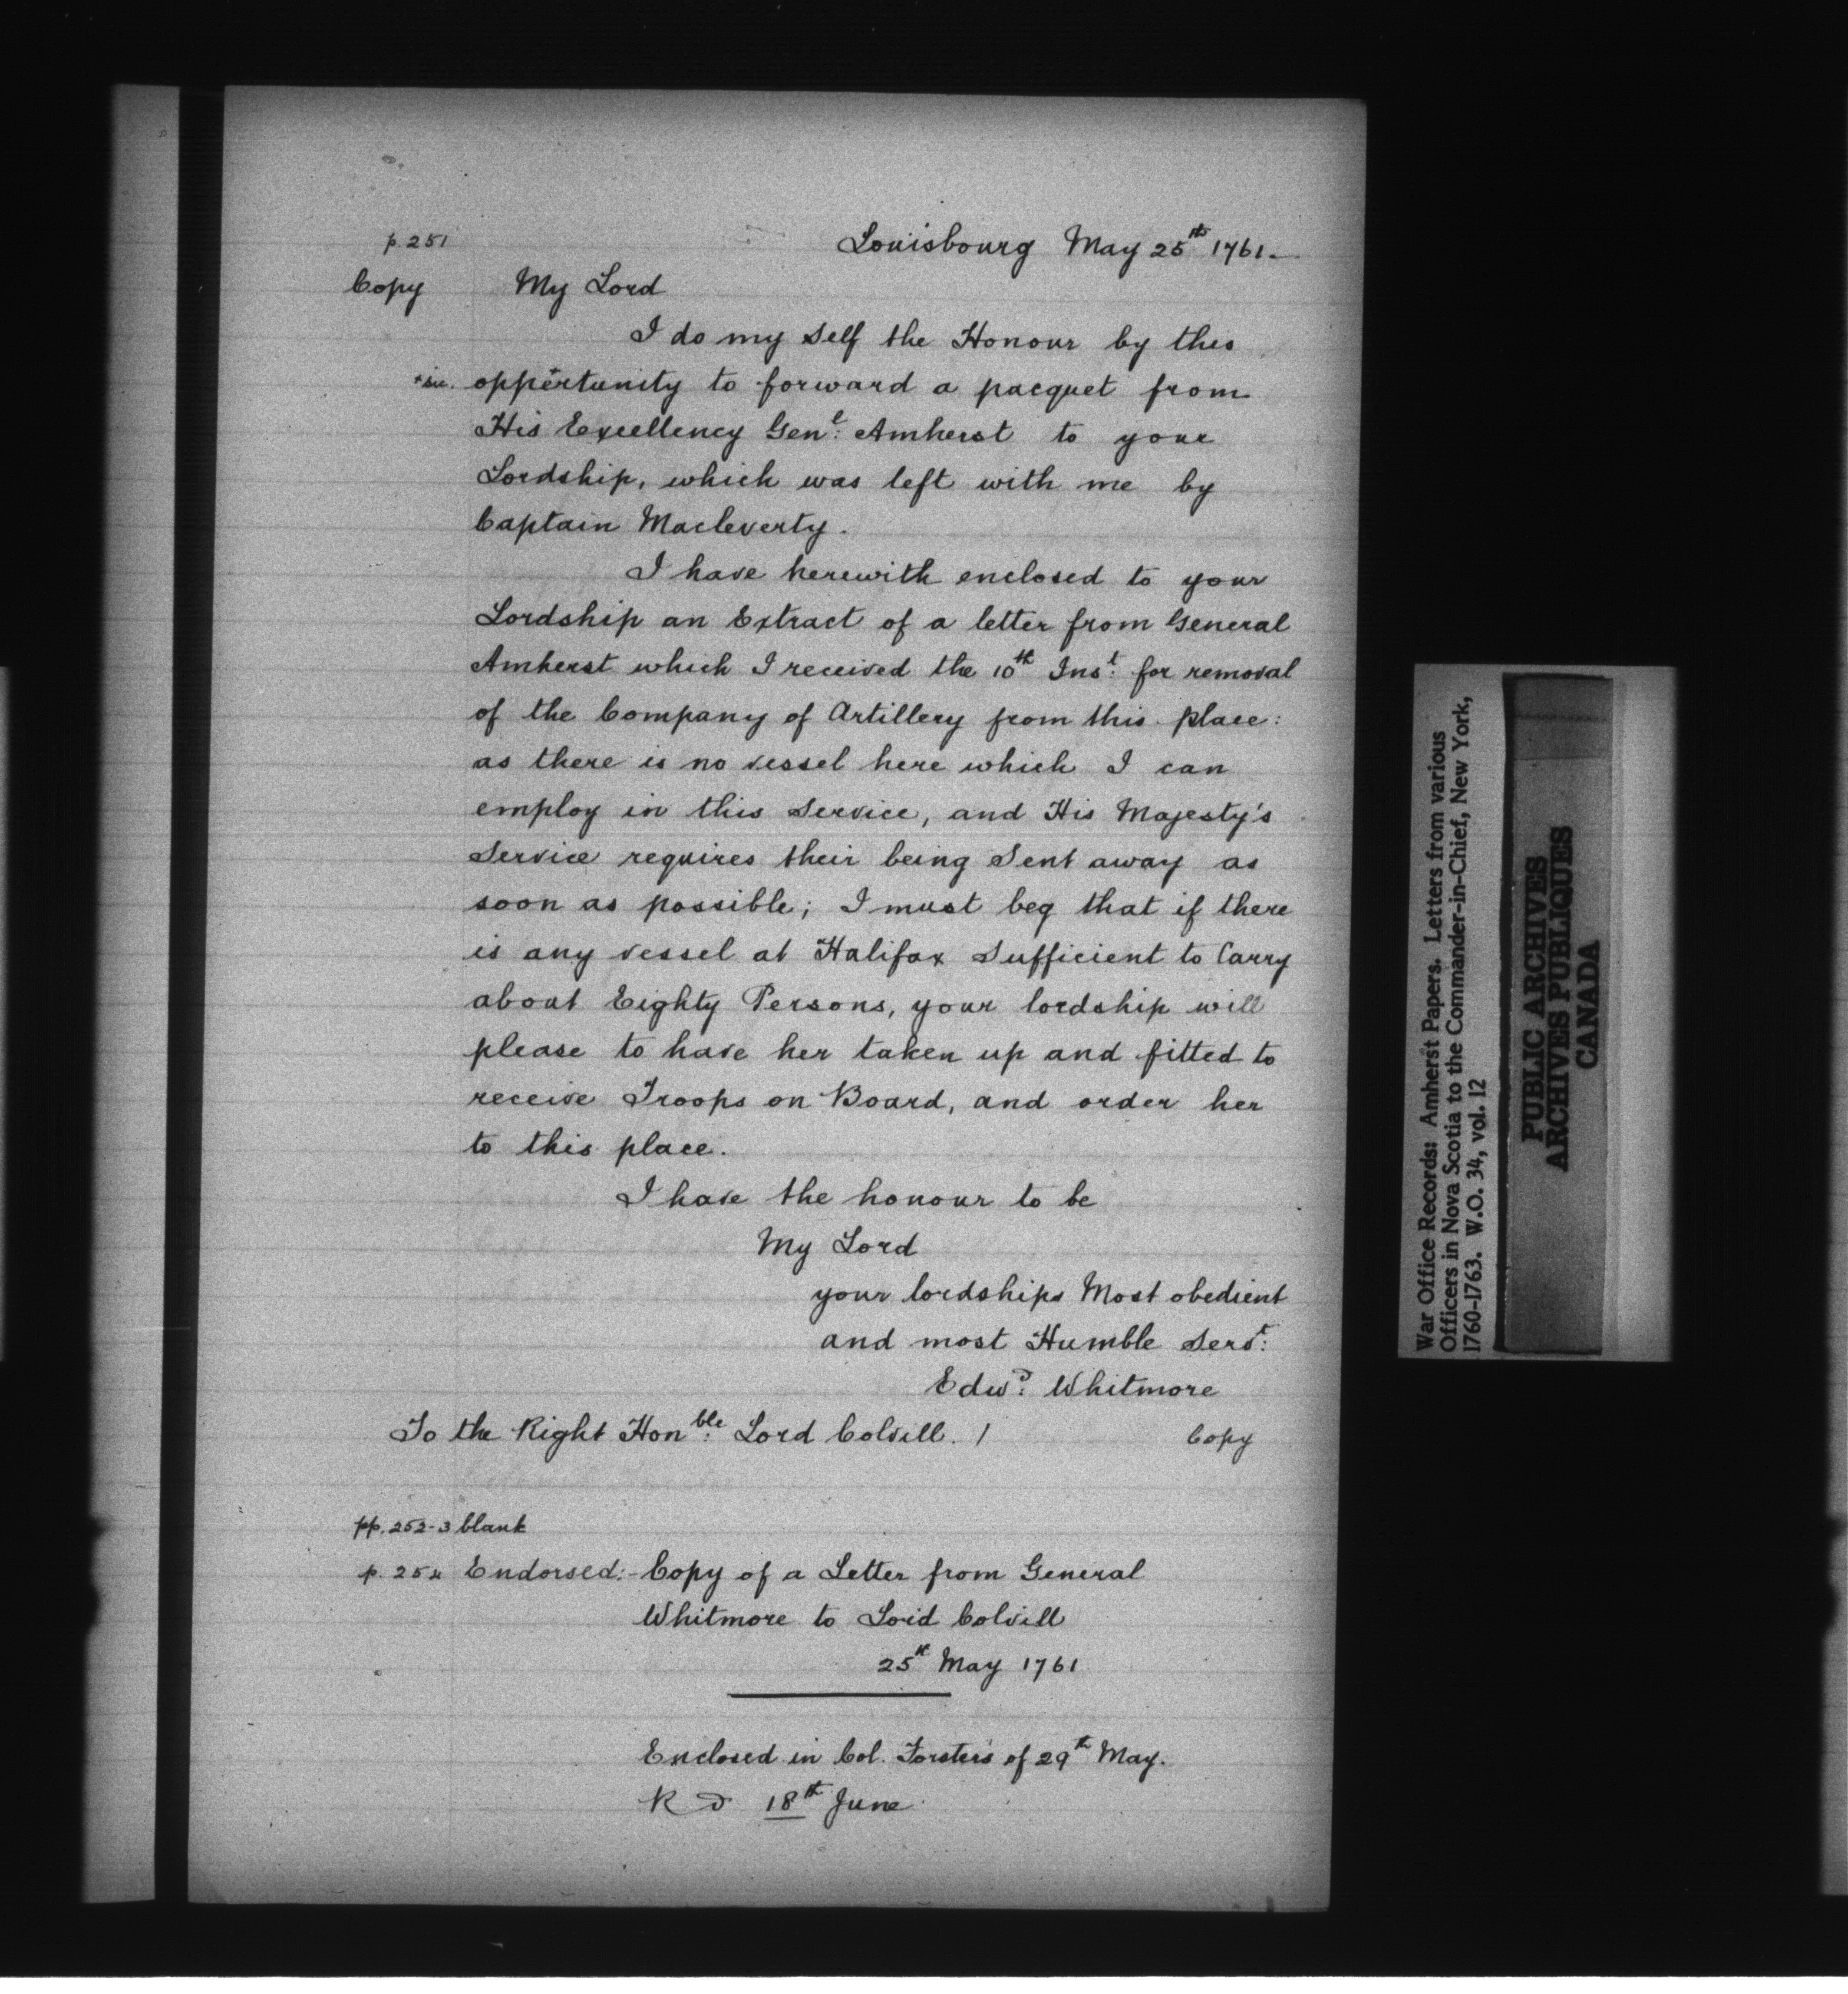 p. 251
Louisbourg May 25th 1761.
Copy My Lord
I do my Self the Honour by this
+sic. oppertunity to forward a pacquet from
His Excellency Genl: Amherst to your
Lordship, which was left with me by
Captain Macleverty.
I have herewith enclosed to your
Lordship an Extract of a letter from General
Amherst which I received the 10th Inst: for removal
of the Company of Artillery from this place:
as there is no vessel here which I can
employ in this Service, and His Majesty's
Service requires their being Sent away as
soon as possible; I must beg that if there
is any vessel at Halifax Sufficient to Carry
about Eighty Persons, your lordship will
please to have her taken up and fitted to
receive Troops on Board, and order her
to this place.
I have the honour to be
My Lord
your lordships Most obedient
and most Humble Servt:
Edwd: Whitmore
To the Right Honble: Lord Colvill. /
Copy
pp. 252-3 blank
p. 254 Endorsed:- Copy of a Letter from General
Whitmore to Lord Colvill
25th May 1761
Enclosed in Col. Forster's of 29th May.
R d 18th June
War Office Records: Amherst Papers. Letters from various
Officers in Nova Scotia to the Commander-in-Chief, New York,
1760-1763. W.O. 34, vol. 12
PUBLIC ARCHIVES
ARCHIVES PUBLIQUES
CANADA